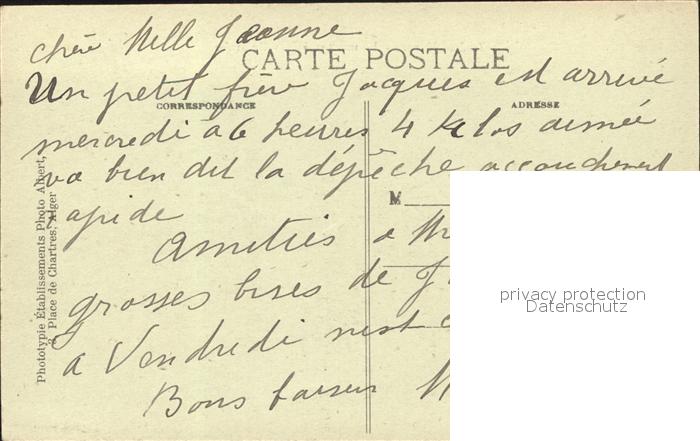 chère Melle Jeanne
CARTE POSTALE
Un petit frère Jacques est arrivé
CORRESPONDANCE
ADRESSE
mercredi à 6 heures 4 kilos aimée
va bien dit la dépêche accouchement
M
rapide
Amitiés à M
grosses bises de J
à Vendredi n'est
Bons baisers M
Phototypie Établissements Photo Albert,
2, Place de Chartres, Alger
privacy protection
Datenschutz